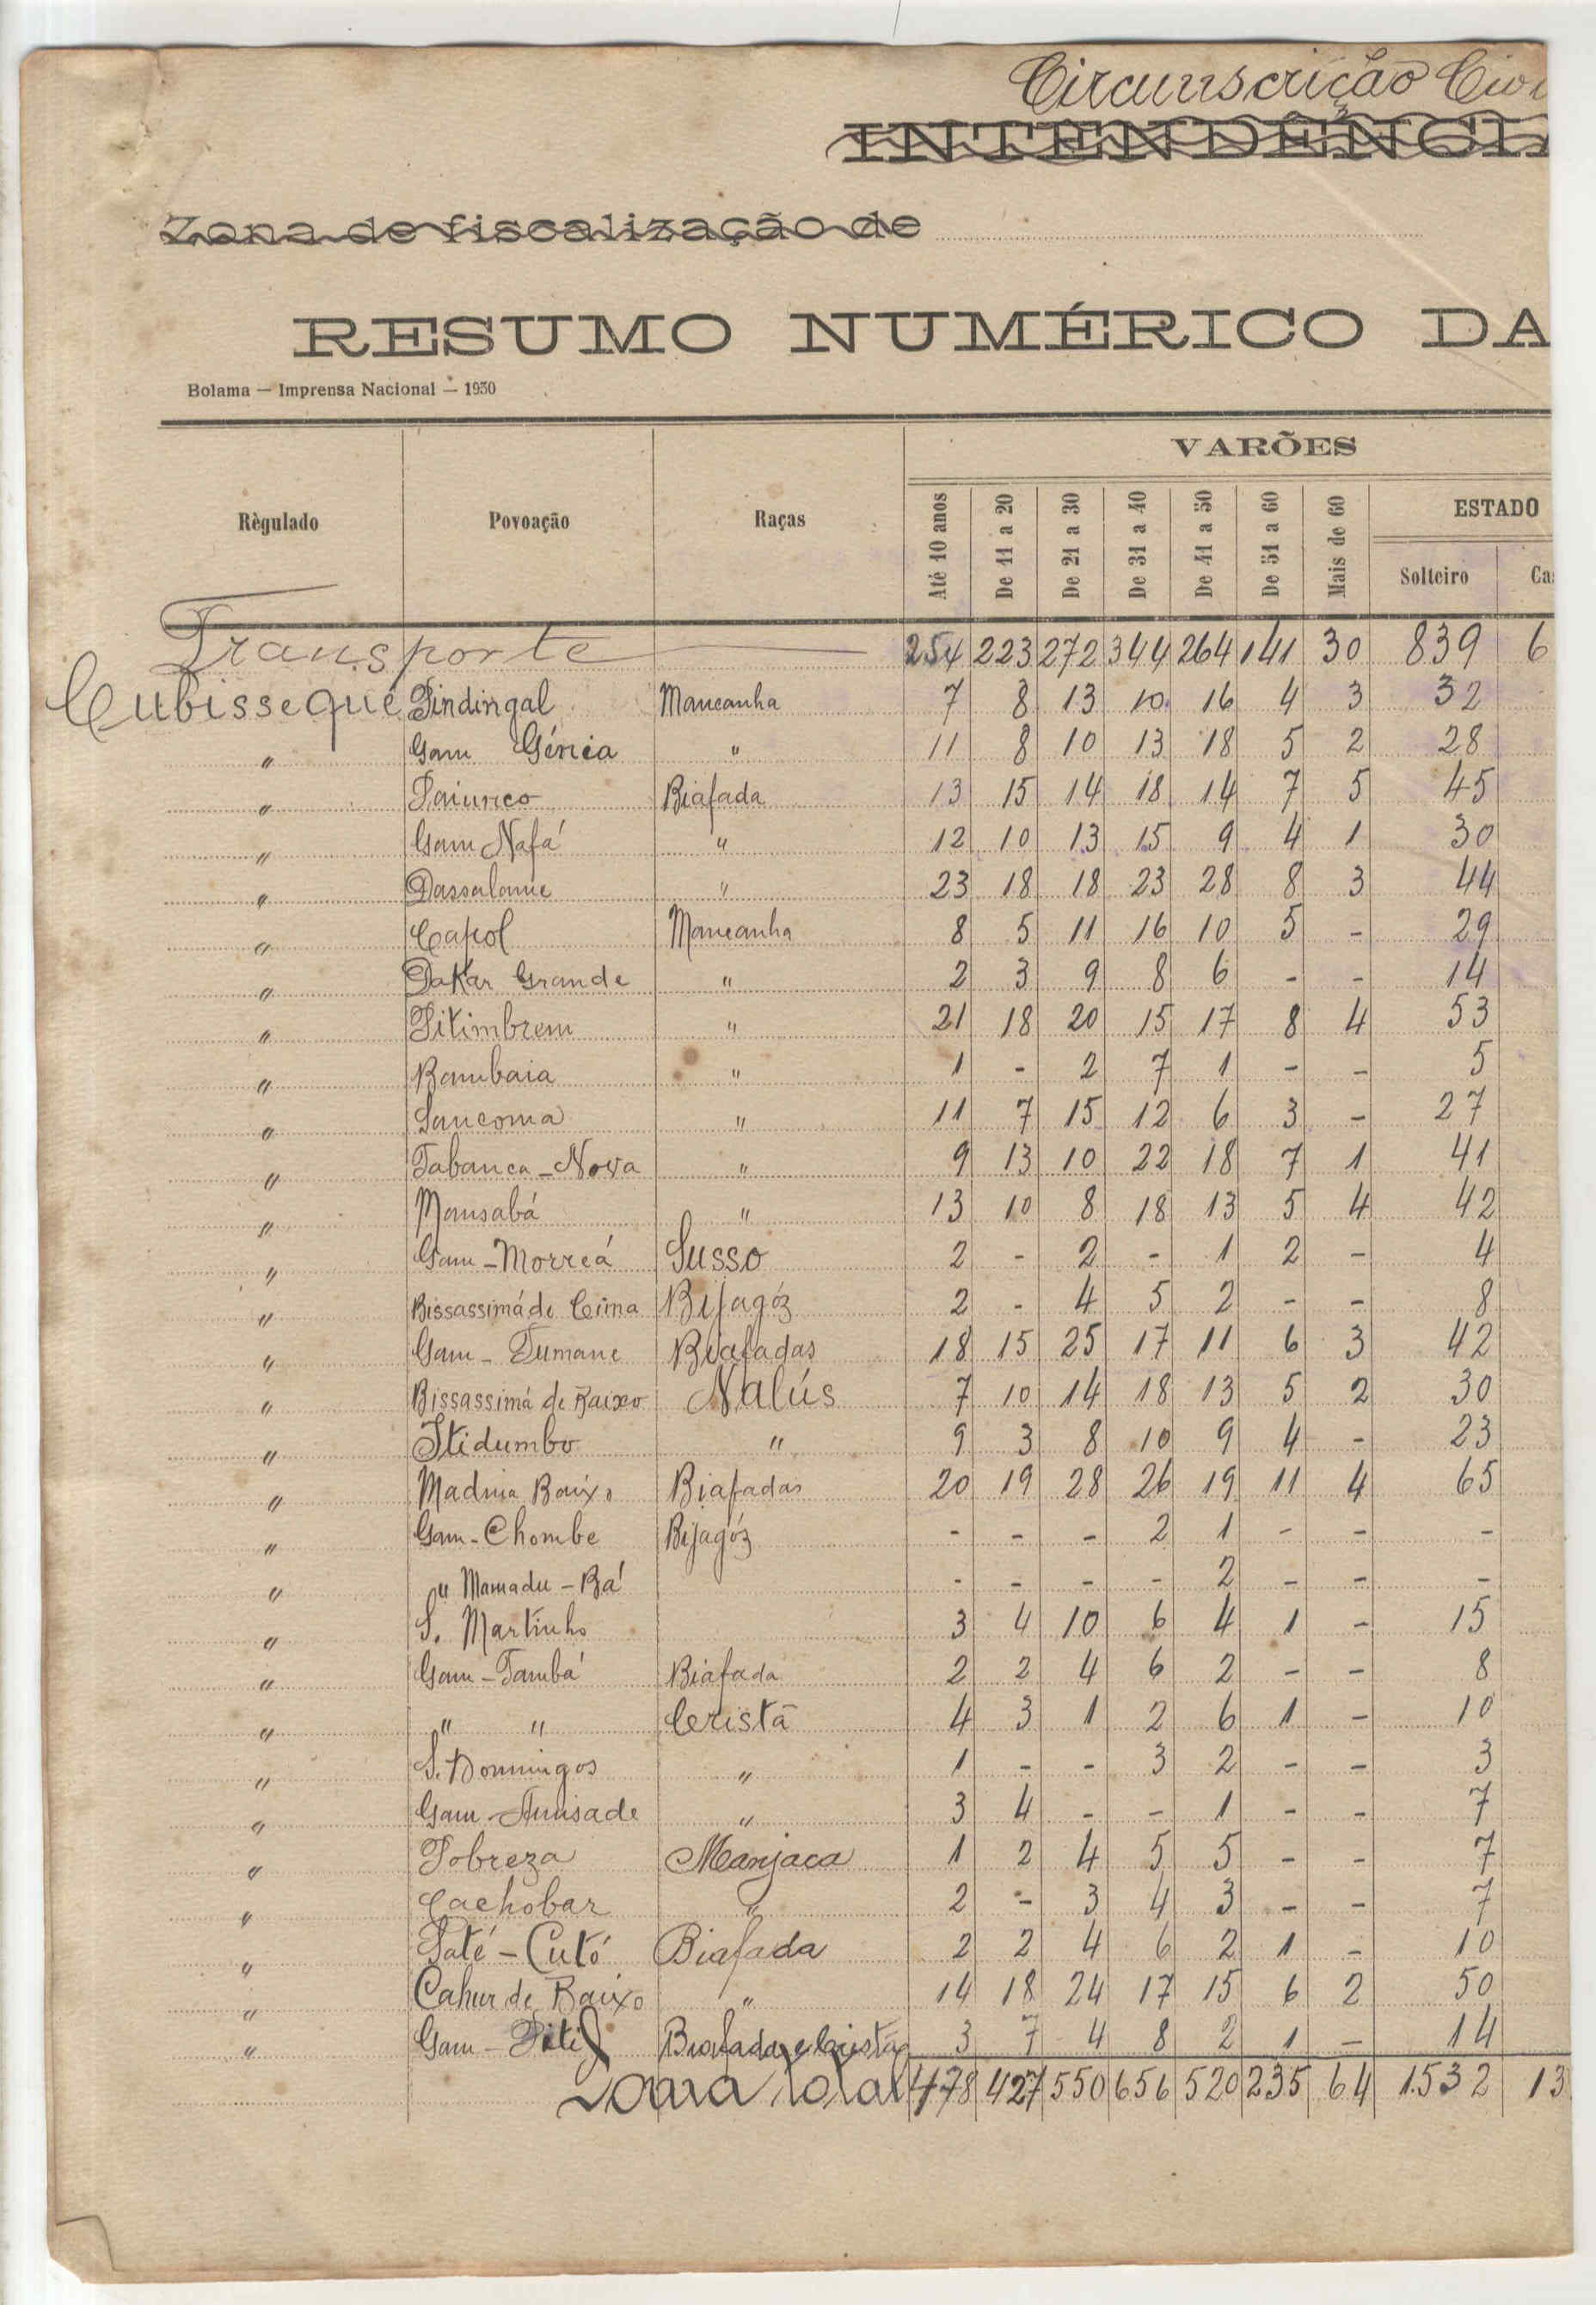 Circunscrição Civi
INTENDÊNCIA
Zona de fiscalização de
RESUMO NUMÉRICO DA
Bolama — Imprensa Nacional — 1930
Règulado Povoação Raças VARÕES
Até 10 anos De 11 a 20 De 21 a 30 De 31 a 40 De 41 a 50 De 51 a 60 Mais de 60 ESTADO
Solteiro Cas
Transporte 254 223 272 344 264 141 30 839 6
Cubisseque Pindingal Mancanha 7 8 13 10 16 4 3 32
" Gam Génia " 11 8 10 13 18 5 2 28
" Paiunco Biafada 13 15 14 18 14 7 5 45
" Gam Nafá " 12 10 13 15 9 4 1 30
" Dassalame " 23 18 18 23 28 8 3 44
" Capol Mancanha 8 5 11 16 10 5 - 29
" Dakar Grande " 2 3 9 8 6 - - 14
" Pitimbrem " 21 18 20 15 17 8 4 53
" Bambaia " 1 - 2 7 1 - - 5
" Sancoma " 11 7 15 12 6 3 - 27
" Tabanca-Nova " 9 13 10 22 18 7 1 41
" Mansabá " 13 10 8 18 13 5 4 42
" Gam-Morreá Susso 2 - 2 - 1 2 - 4
" Bissassimá de Cima Bijagóz 2 - 4 5 2 - - 8
" Gam-Dumane Biafadas 18 15 25 17 11 6 3 42
" Bissassimá de Baixo Nalús 7 10 14 18 13 5 2 30
" Itidumbo " 9 3 8 10 9 4 - 23
" Madina Baixo Biafadas 20 19 28 26 19 11 4 65
" Gam-Chombe Bijagóz - - - 2 1 - - -
" " Mamadu-Bá - - - - 2 - - -
" S. Martinho 3 4 10 6 4 1 - 15
" Gam-Tambá Biafada 2 2 4 6 2 - - 8
" " " Cristã 4 3 1 2 6 1 - 10
" S. Domingos " 1 - - 3 2 - - 3
" Gam-Amisade " 3 4 - - 1 - - 7
" Pobreza Manjaca 1 2 4 5 5 - - 7
" Cachobar " 2 - 3 4 3 - - 7
" Paté-Cutó Biafada 2 2 4 6 2 1 - 10
" Cahur de Baixo " 14 18 24 17 15 6 2 50
" Gam-Piti Biafada e Cristã 3 7 4 8 2 1 - 14
Soma total 478 427 550 656 520 235 64 1.532 13